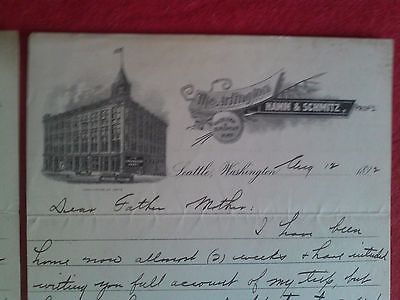 The Arlington
HAMM & SCHMITZ,
PROP'S.
EUROPEAN
PLAN
Seattle, Washington, Aug 12 1892
Dear Father Mother:
I have been
home now allmost (2) weeks & have intended
writing you full account of my trip but